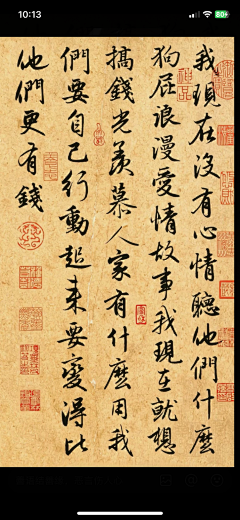 10:13
我現在沒有心情聽他們什麼
狗屁浪漫愛情故事我現在就想
搞錢光羨慕人家有什麼用我
們要自己行動起來要變得比
他們更有錢